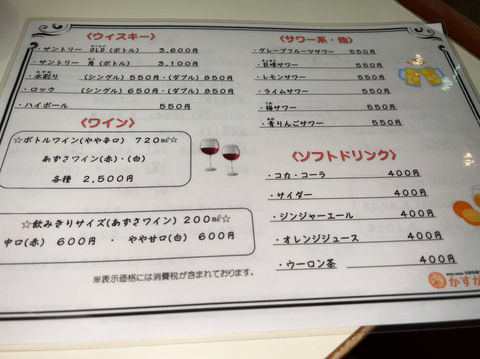 〈ウィスキー〉
・サントリー OLD (ボトル) 3,600円
・サントリー 角 (ボトル) 3,100円
・水割り (シングル) 550円・(ダブル) 850円
・ロック (シングル) 650円・(ダブル) 850円
・ハイボール 550円
〈ワイン〉
☆ボトルワイン(やや辛口) 720㎖☆
あずさワイン(赤)・(白)
各種 2,500円
☆飲みきりサイズ(あずさワイン) 200㎖☆
中口(赤) 600円 ・ やや甘口(白) 600円
※表示価格には消費税が含まれております。
〈サワー系・他〉
・グレープフルーツサワー 550円
・巨峰サワー 550円
・レモンサワー 550円
・ライムサワー 550円
・梅サワー 550円
・青りんごサワー 550円
〈ソフトドリンク〉
・コカ・コーラ 400円
・サイダー 400円
・ジンジャーエール 400円
・オレンジジュース 400円
・ウーロン茶 400円